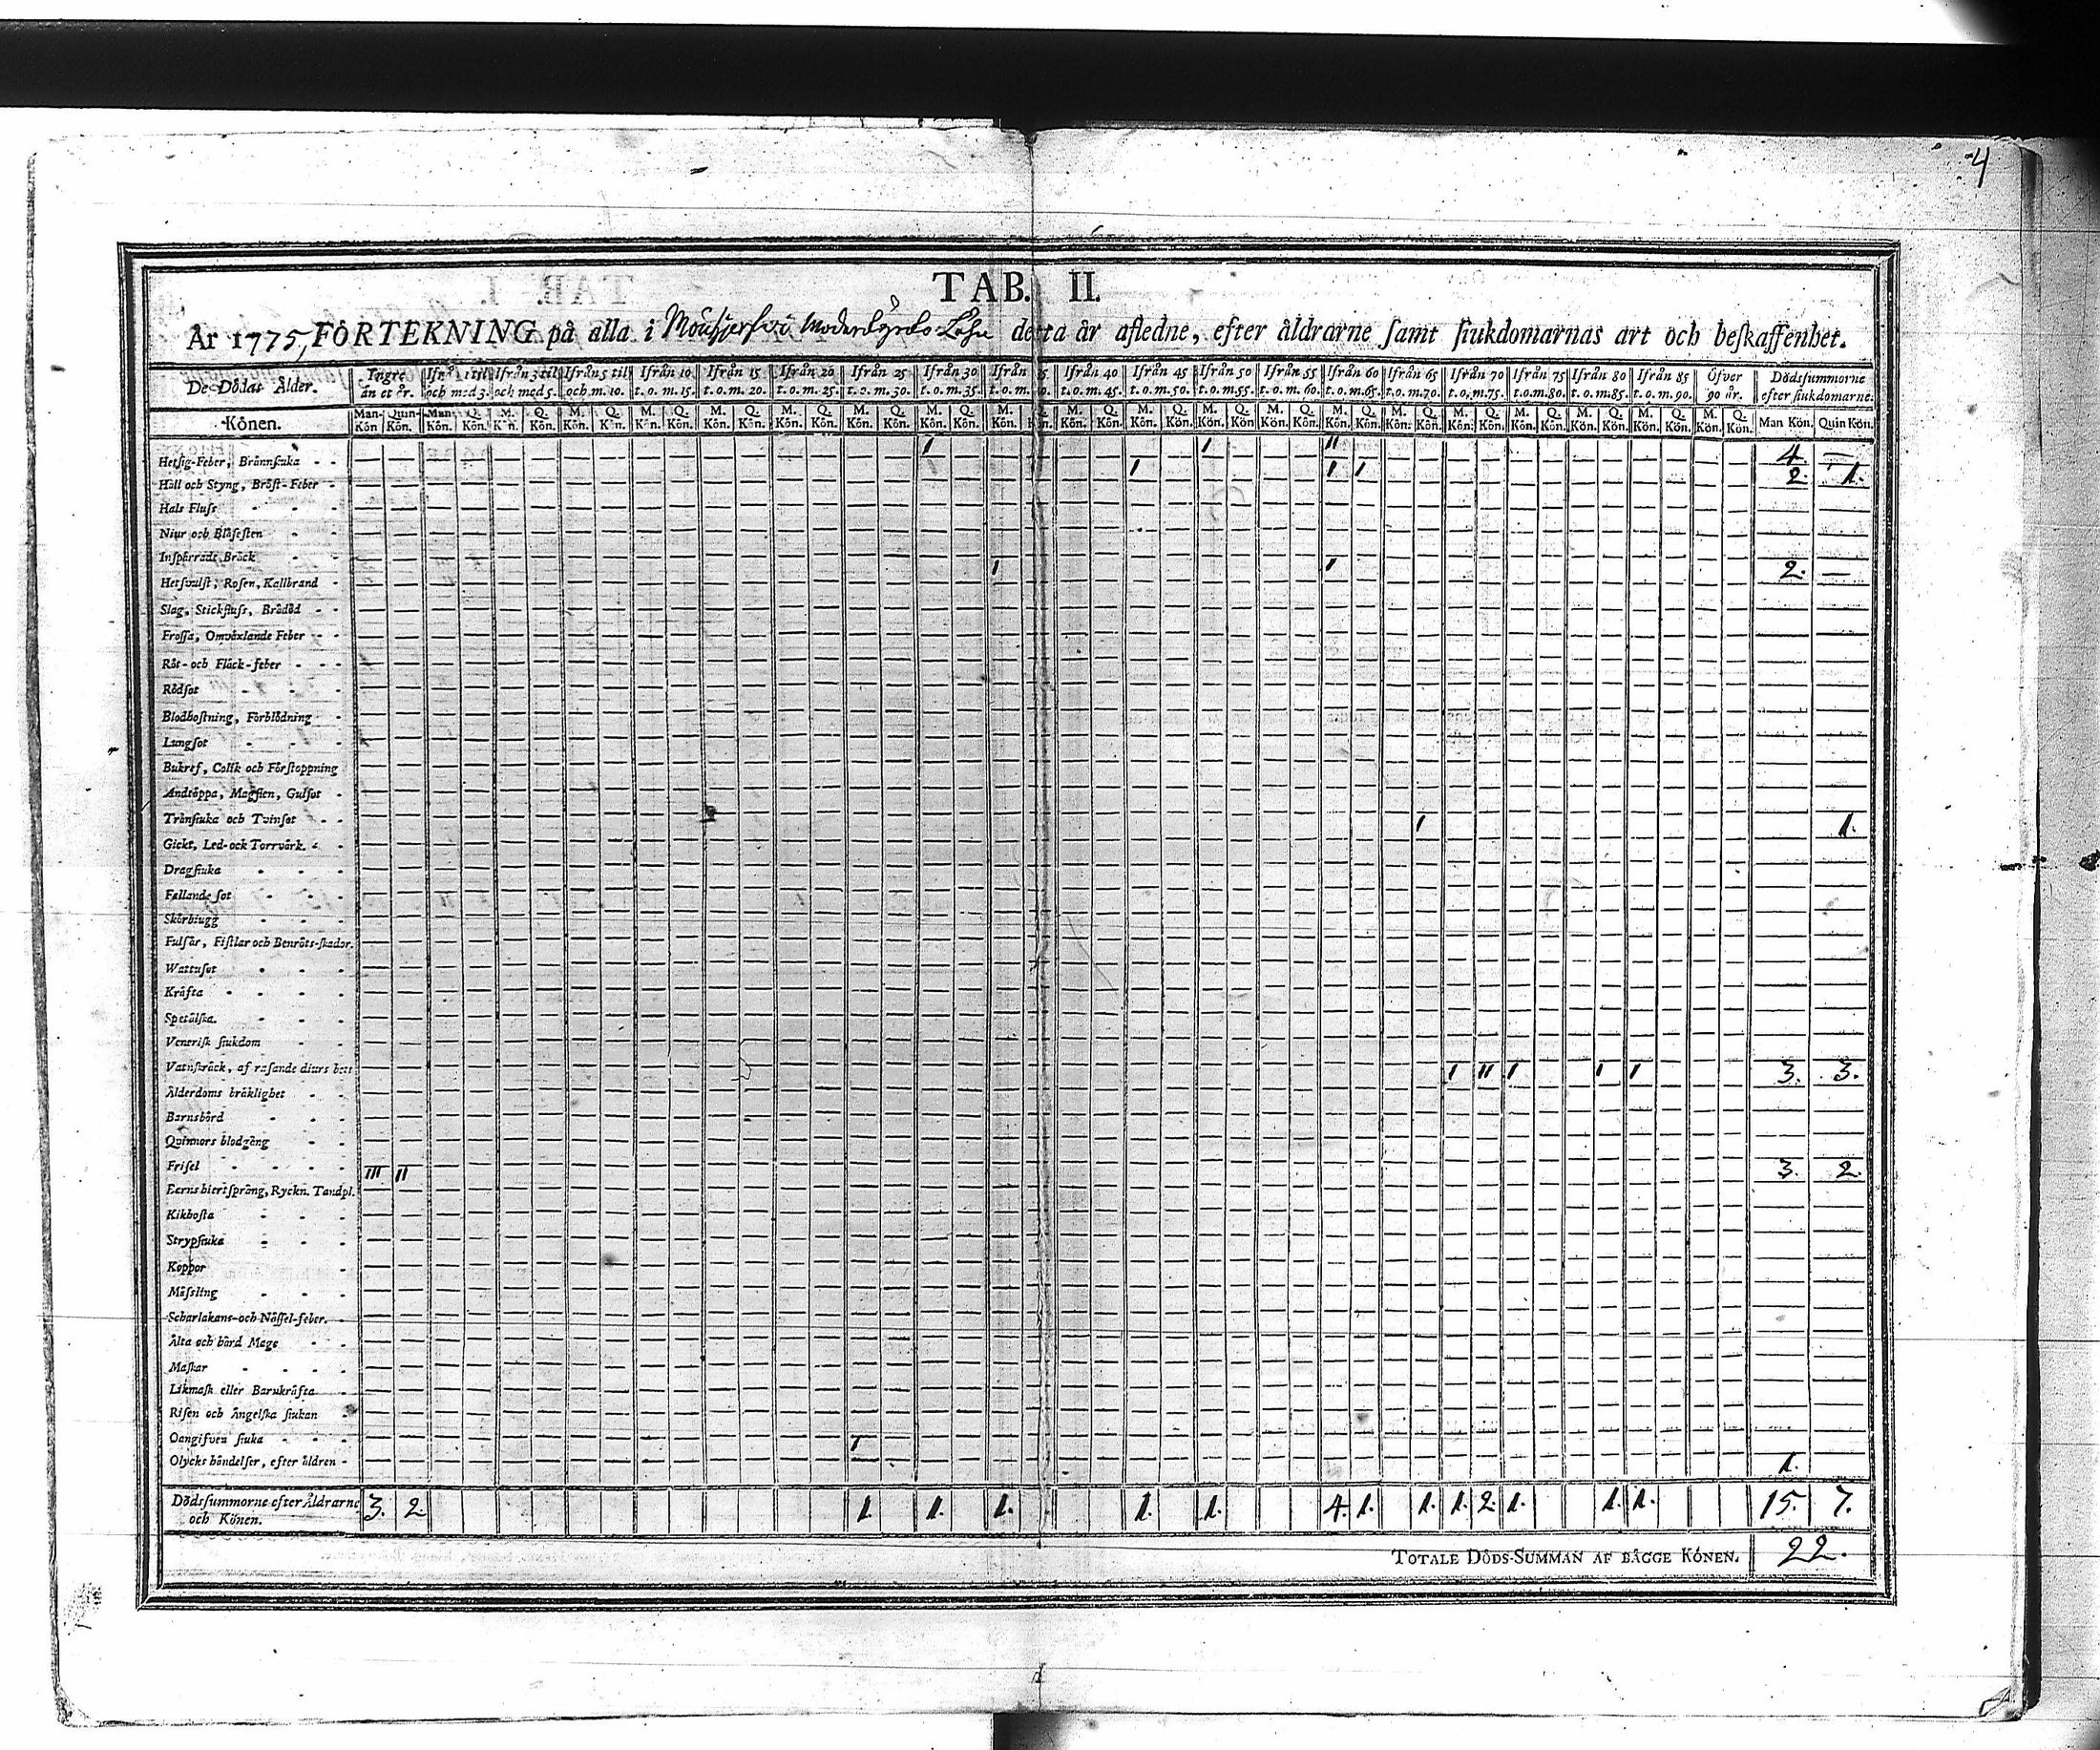 4
TAB. II.
År 1775, FÖRTEKNING på alla i detta år afledne, efter åldrarne samt siukdomarnas art och beskaffenhet.
De Dödas Ålder. Yngre än et år. Ifrån 1 til och med 3. Ifrån 3 til och med 5. Ifrån 5 til och m. 10. Ifrån 10 t. o. m. 15. Ifrån 15 t. o. m. 20. Ifrån 20 t. o. m. 25. Ifrån 25 t. o. m. 30. Ifrån 30 t. o. m. 35. Ifrån t. o. m. Ifrån 40 t. o. m. 45. Ifrån 45 t. o. m. 50. Ifrån 50 t. o. m. 55. Ifrån 55 t. o. m. 60. Ifrån 60 t. o. m. 65. Ifrån 65 t. o. m. 70. Ifrån 70 t. o. m. 75. Ifrån 75 t. o. m. 80. Ifrån 80 t. o. m. 85. Ifrån 85 t. o. m. 90. Öfver 90 år. Dödssummorne efter siukdomarne.
Könen. Man-Kön Quin-Kön. Man-Kön. Q. Kön. M. Kön. Q. Kön. M. Kön. Q. Kön. M. Kön. Q. Kön. M. Kön. Q. Kön. M. Kön. Q. Kön. M. Kön. Q. Kön. M. Kön. Q. Kön. M. Kön. Kön. M. Kön. Q. Kön. M. Kön. Q. Kön. M. Kön. Q. Kön. M. Kön. Q. Kön. M. Kön. Q. Kön. M. Kön. Q. Kön. M. Kön. Q. Kön. M. Kön. Q. Kön. M. Kön. Q. Kön. M. Kön. Q. Kön. M. Kön. Q. Kön. Man Kön. Quin Kön.
Hetsig-Feber, Brännsiuka - - I I II 4 —
Håll och Styng, Bröst-Feber - I I I 2. 1.
Hals Fluss - - -
Niur och Blåsesten - -
Inspärrade Bråck - -
Hetsvulst, Rosen, Kallbrand - I I 2. —
Slag, Stickfluss, Brådöd - -
Frossa, Omväxlande Feber - -
Röt- och Fläck-feber - - -
Rödsot - - -
Blodhostning, Förblödning -
Lungsot - - -
Bukref, Colik och Förstoppning
Andtäppa, Magsien, Gulsot -
Trånsiuka och Tvinsot - -
Gickt, Led- ock Torrvärk. - - I 1.
Dragsiuka - - -
Fallande sot - - -
Skörbiugg - - -
Fulsår, Fistlar och Benröts-skador.
Wattusot - - -
Kräfta - - - -
Spetälska. - - -
Venerisk siukdom - -
Vatnskräck, af rasande diurs bett
Ålderdoms bräklighet - - I II I I I 3. 3.
Barnsbörd - - -
Qvinnors blodgång - -
Frisel - - - -
Barns hiertsprång, Ryckn. Tandpl. III II 3. 2.
Kikhosta - - -
Strypsiuka - - -
Koppor -
Mässling - - -
Scharlakans- och Nässel-feber. -
Älta och hård Mage - -
Maskar - - - -
Likmask eller Barnkräfta -
Risen och Ängelska siukan -
Oangifven siuka - - -
Olycks händelser, efter åldren - I 1.
Dödssummorne efter Åldrarne och Könen. 3. 2. 1. 1. 1. 1. 1. 4. 1. 1. 1. 2. 1. 1. 1. 15. 7.
TOTALE DÖDS-SUMMAN AF BÄGGE KÖNEN. 22.